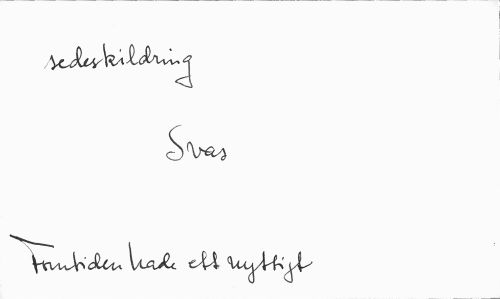 sedeskildring
Svas
Framtiden hade ett nyttigt